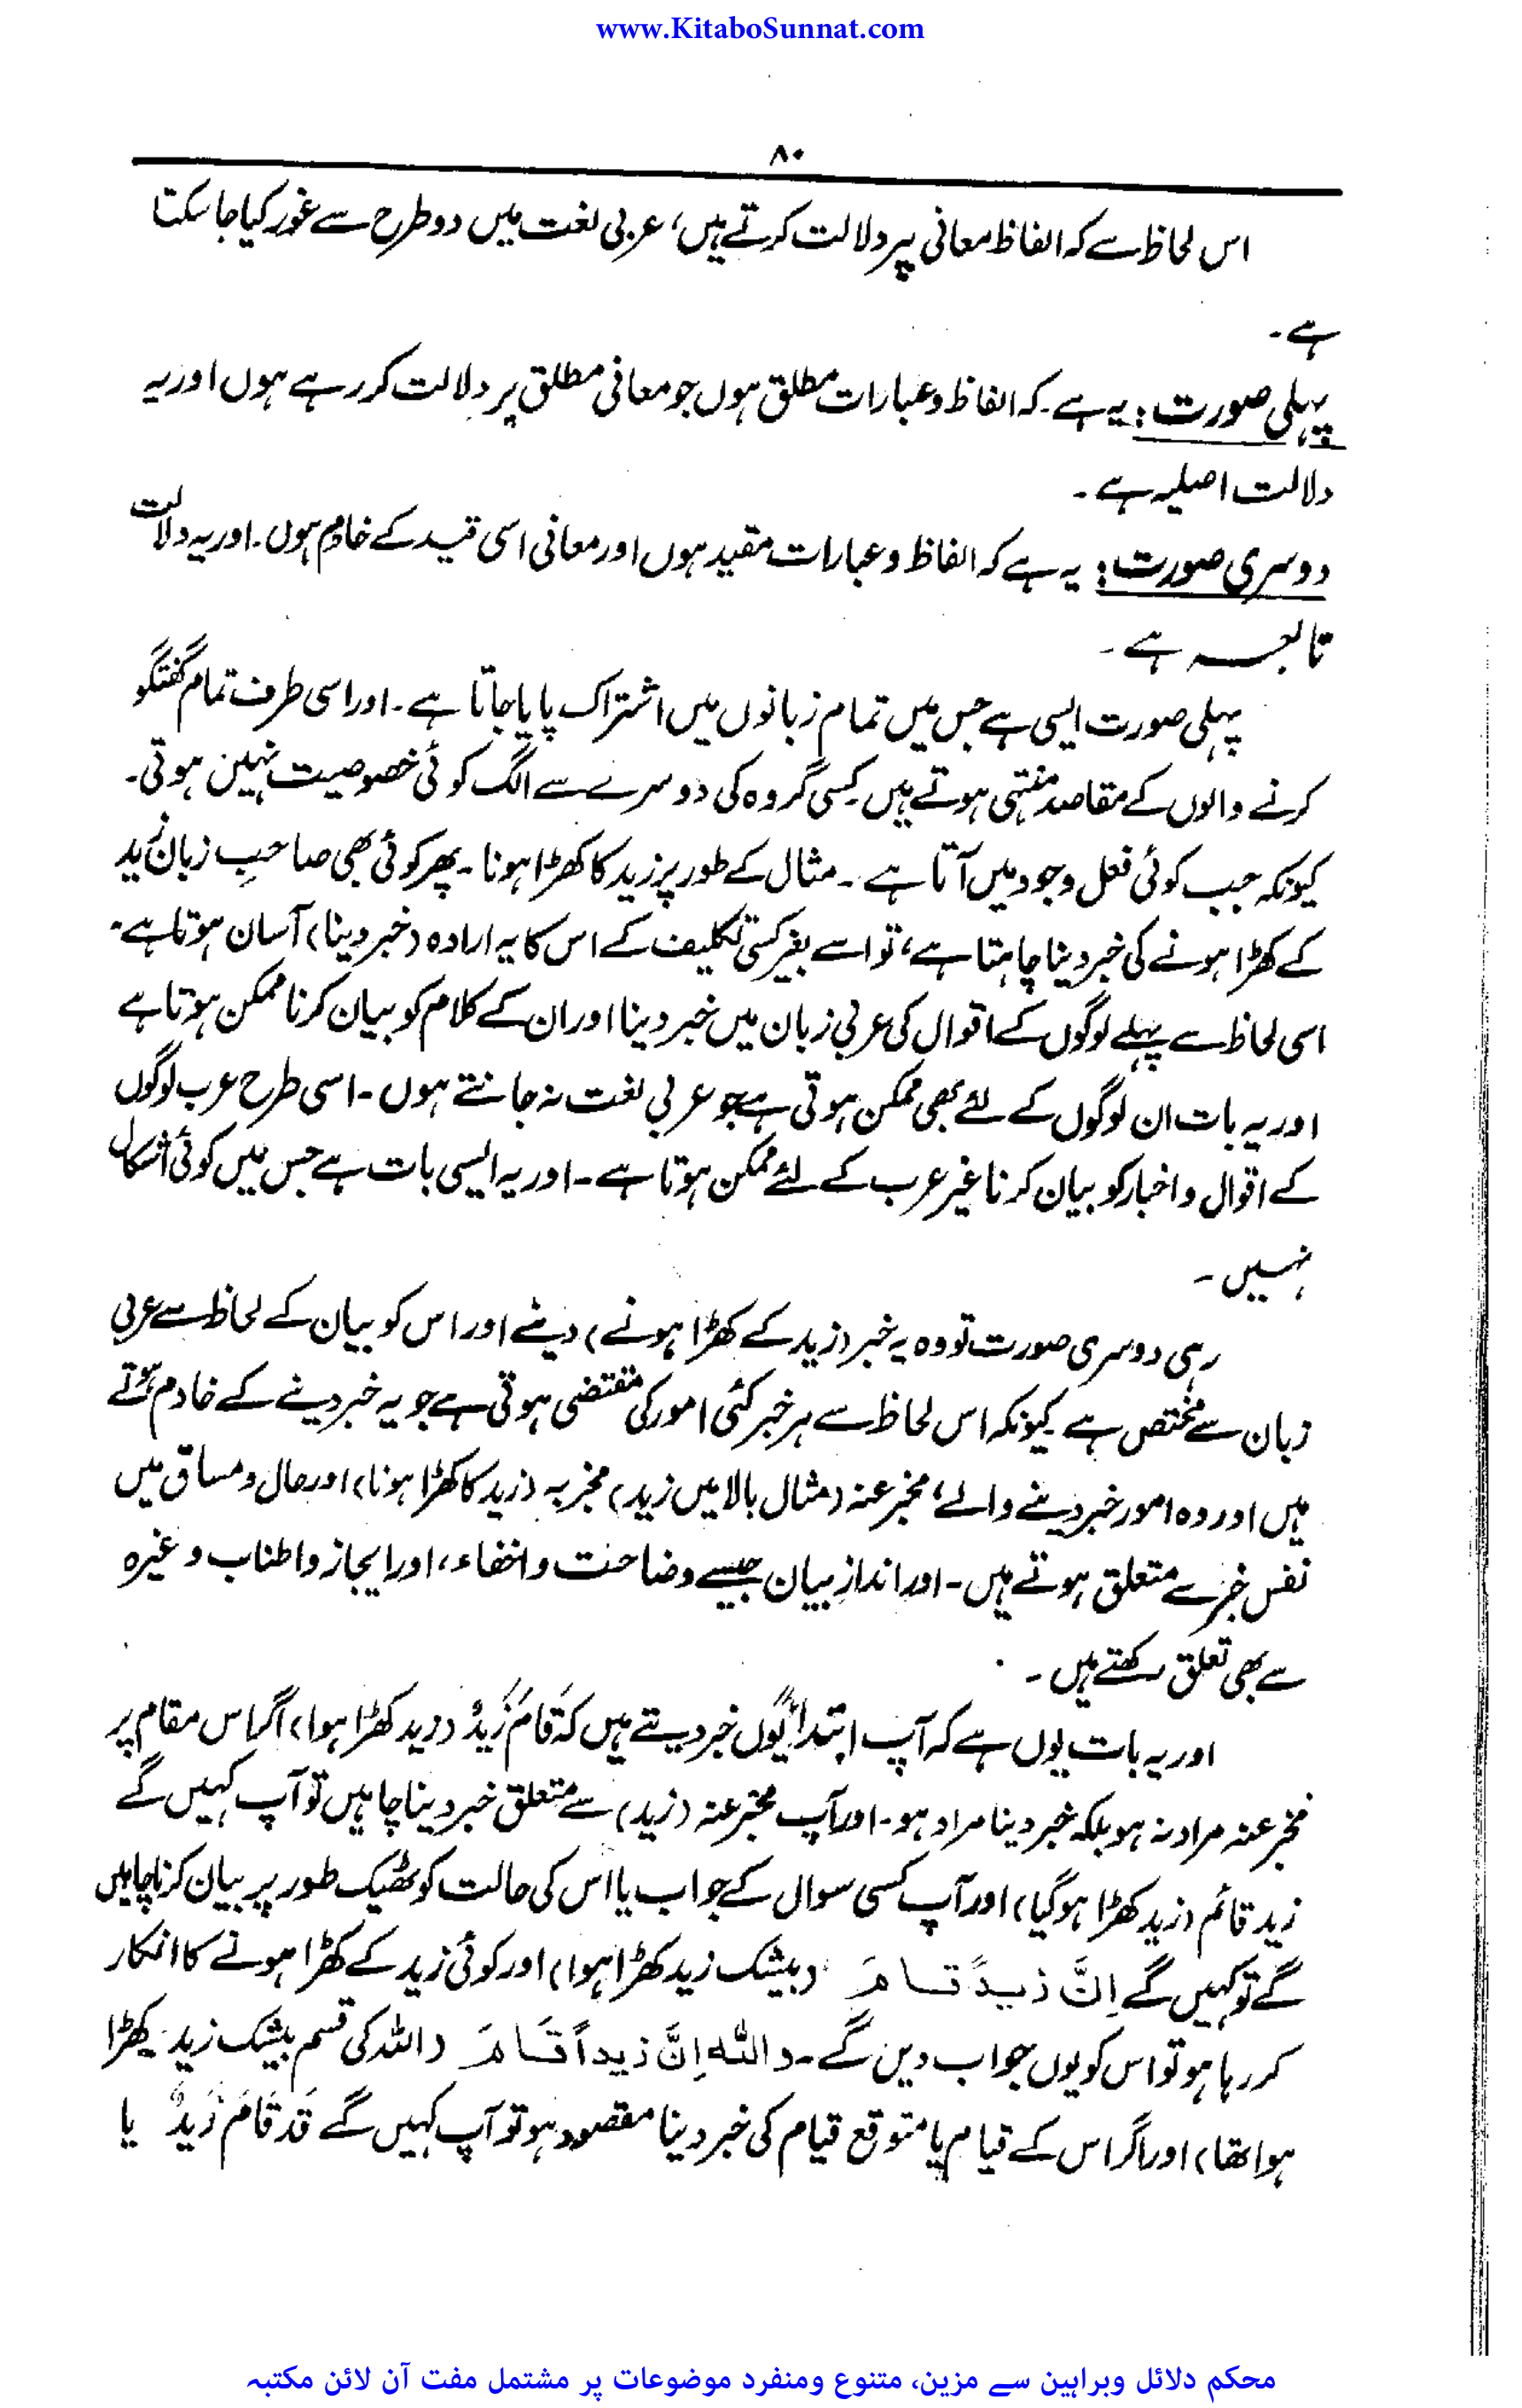 www.KitaboSunnat.com
۸۰
اس لحاظ سے کہ الفاظ معانی پر دلالت کرتے ہیں، عربی لغت میں دو طرح سے غور کیا جا سکتا
ہے۔
پہلی صورت: یہ ہے۔ کہ الفاظ و عبارات مطلق ہوں جو معانی مطلق پر دلالت کر رہے ہوں اور یہ
دلالت اصلیہ ہے۔
دوسری صورت: یہ ہے کہ الفاظ و عبارات مقید ہوں اور معانی اسی قید کے خادم ہوں۔ اور یہ دلالت
تابعہ ہے۔
پہلی صورت ایسی ہے جس میں تمام زبانوں میں اشتراک پایا جاتا ہے۔ اور اسی طرف تمام گفتگو
کرنے والوں کے مقاصد منتہی ہوتے ہیں۔ کسی گروہ کی دوسرے سے الگ کوئی خصوصیت نہیں ہوتی۔
کیونکہ جب کوئی فعل وجود میں آتا ہے۔ مثال کے طور پر زید کا کھڑا ہونا۔ پھر کوئی بھی صاحبِ زبان زید
کے کھڑا ہونے کی خبر دینا چاہتا ہے، تو اسے بغیر کسی تکلیف کے اس کا یہ ارادہ (خبر دینا) آسان ہوتا ہے۔
اسی لحاظ سے پہلے لوگوں کے اقوال کی عربی زبان میں خبر دینا اور ان کے کلام کو بیان کرنا ممکن ہوتا ہے
اور یہ بات ان لوگوں کے لئے بھی ممکن ہوتی ہے جو عربی لغت نہ جانتے ہوں۔ اسی طرح عرب لوگوں
کے اقوال و اخبار کو بیان کرنا غیر عرب کے لئے ممکن ہوتا ہے۔ اور یہ ایسی بات ہے جس میں کوئی اشکال
نہیں۔
رہی دوسری صورت تو وہ یہ خبر (زید کے کھڑا ہونے) دینے اور اس کو بیان کے لحاظ سے عربی
زبان سے مختص ہے کیونکہ اس لحاظ سے ہر خبر کئی امور کی مقتضی ہوتی ہے جو یہ خبر دینے کے خادم ہوتے
ہیں اور وہ امور خبر دینے والے، مخبر عنہ (مثال بالا میں زید) مخبر بہ (زید کا کھڑا ہونا) اور حال و مساق میں
نفس خبر سے متعلق ہوتے ہیں۔ اور اندازِ بیان جیسے وضاحت و اخفاء، اور ایجاز و اطناب وغیرہ
سے بھی تعلق رکھتے ہیں۔
اور یہ بات یوں ہے کہ آپ ابتداءً یوں خبر دیتے ہیں کہ قَامَ زَیدٌ (زید کھڑا ہوا) اگر اس مقام پر
مخبر عنہ مراد نہ ہو بلکہ خبر دینا مراد ہو۔ اور آپ مخبر عنہ (زید) سے متعلق خبر دینا چاہیں تو آپ کہیں گے
زید قائم (زید کھڑا ہو گیا) اور آپ کسی سوال کے جواب یا اس کی حالت کو ٹھیک طور پر بیان کرنا چاہیں
گے تو کہیں گے اِنَّ زیداً قامَ (بیشک زید کھڑا ہوا) اور کوئی زید کے کھڑا ہونے کا انکار
کر رہا ہو تو اس کو یوں جواب دیں گے۔ واللہ اِنَّ زیداً قَامَ (اللہ کی قسم بیشک زید کھڑا
ہوا تھا) اور اگر اس کے قیام یا متوقع قیام کی خبر دینا مقصود ہو تو آپ کہیں گے قَد قَامَ زَیدٌ یا
محکم دلائل وبراہین سے مزین، متنوع ومنفرد موضوعات پر مشتمل مفت آن لائن مکتبہ